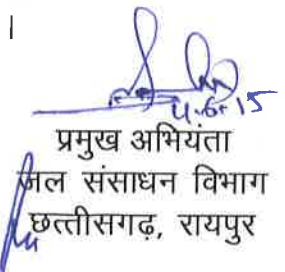 4.6.15
प्रमुख अभियंता
जल संसाधन विभाग
छत्तीसगढ़, रायपुर